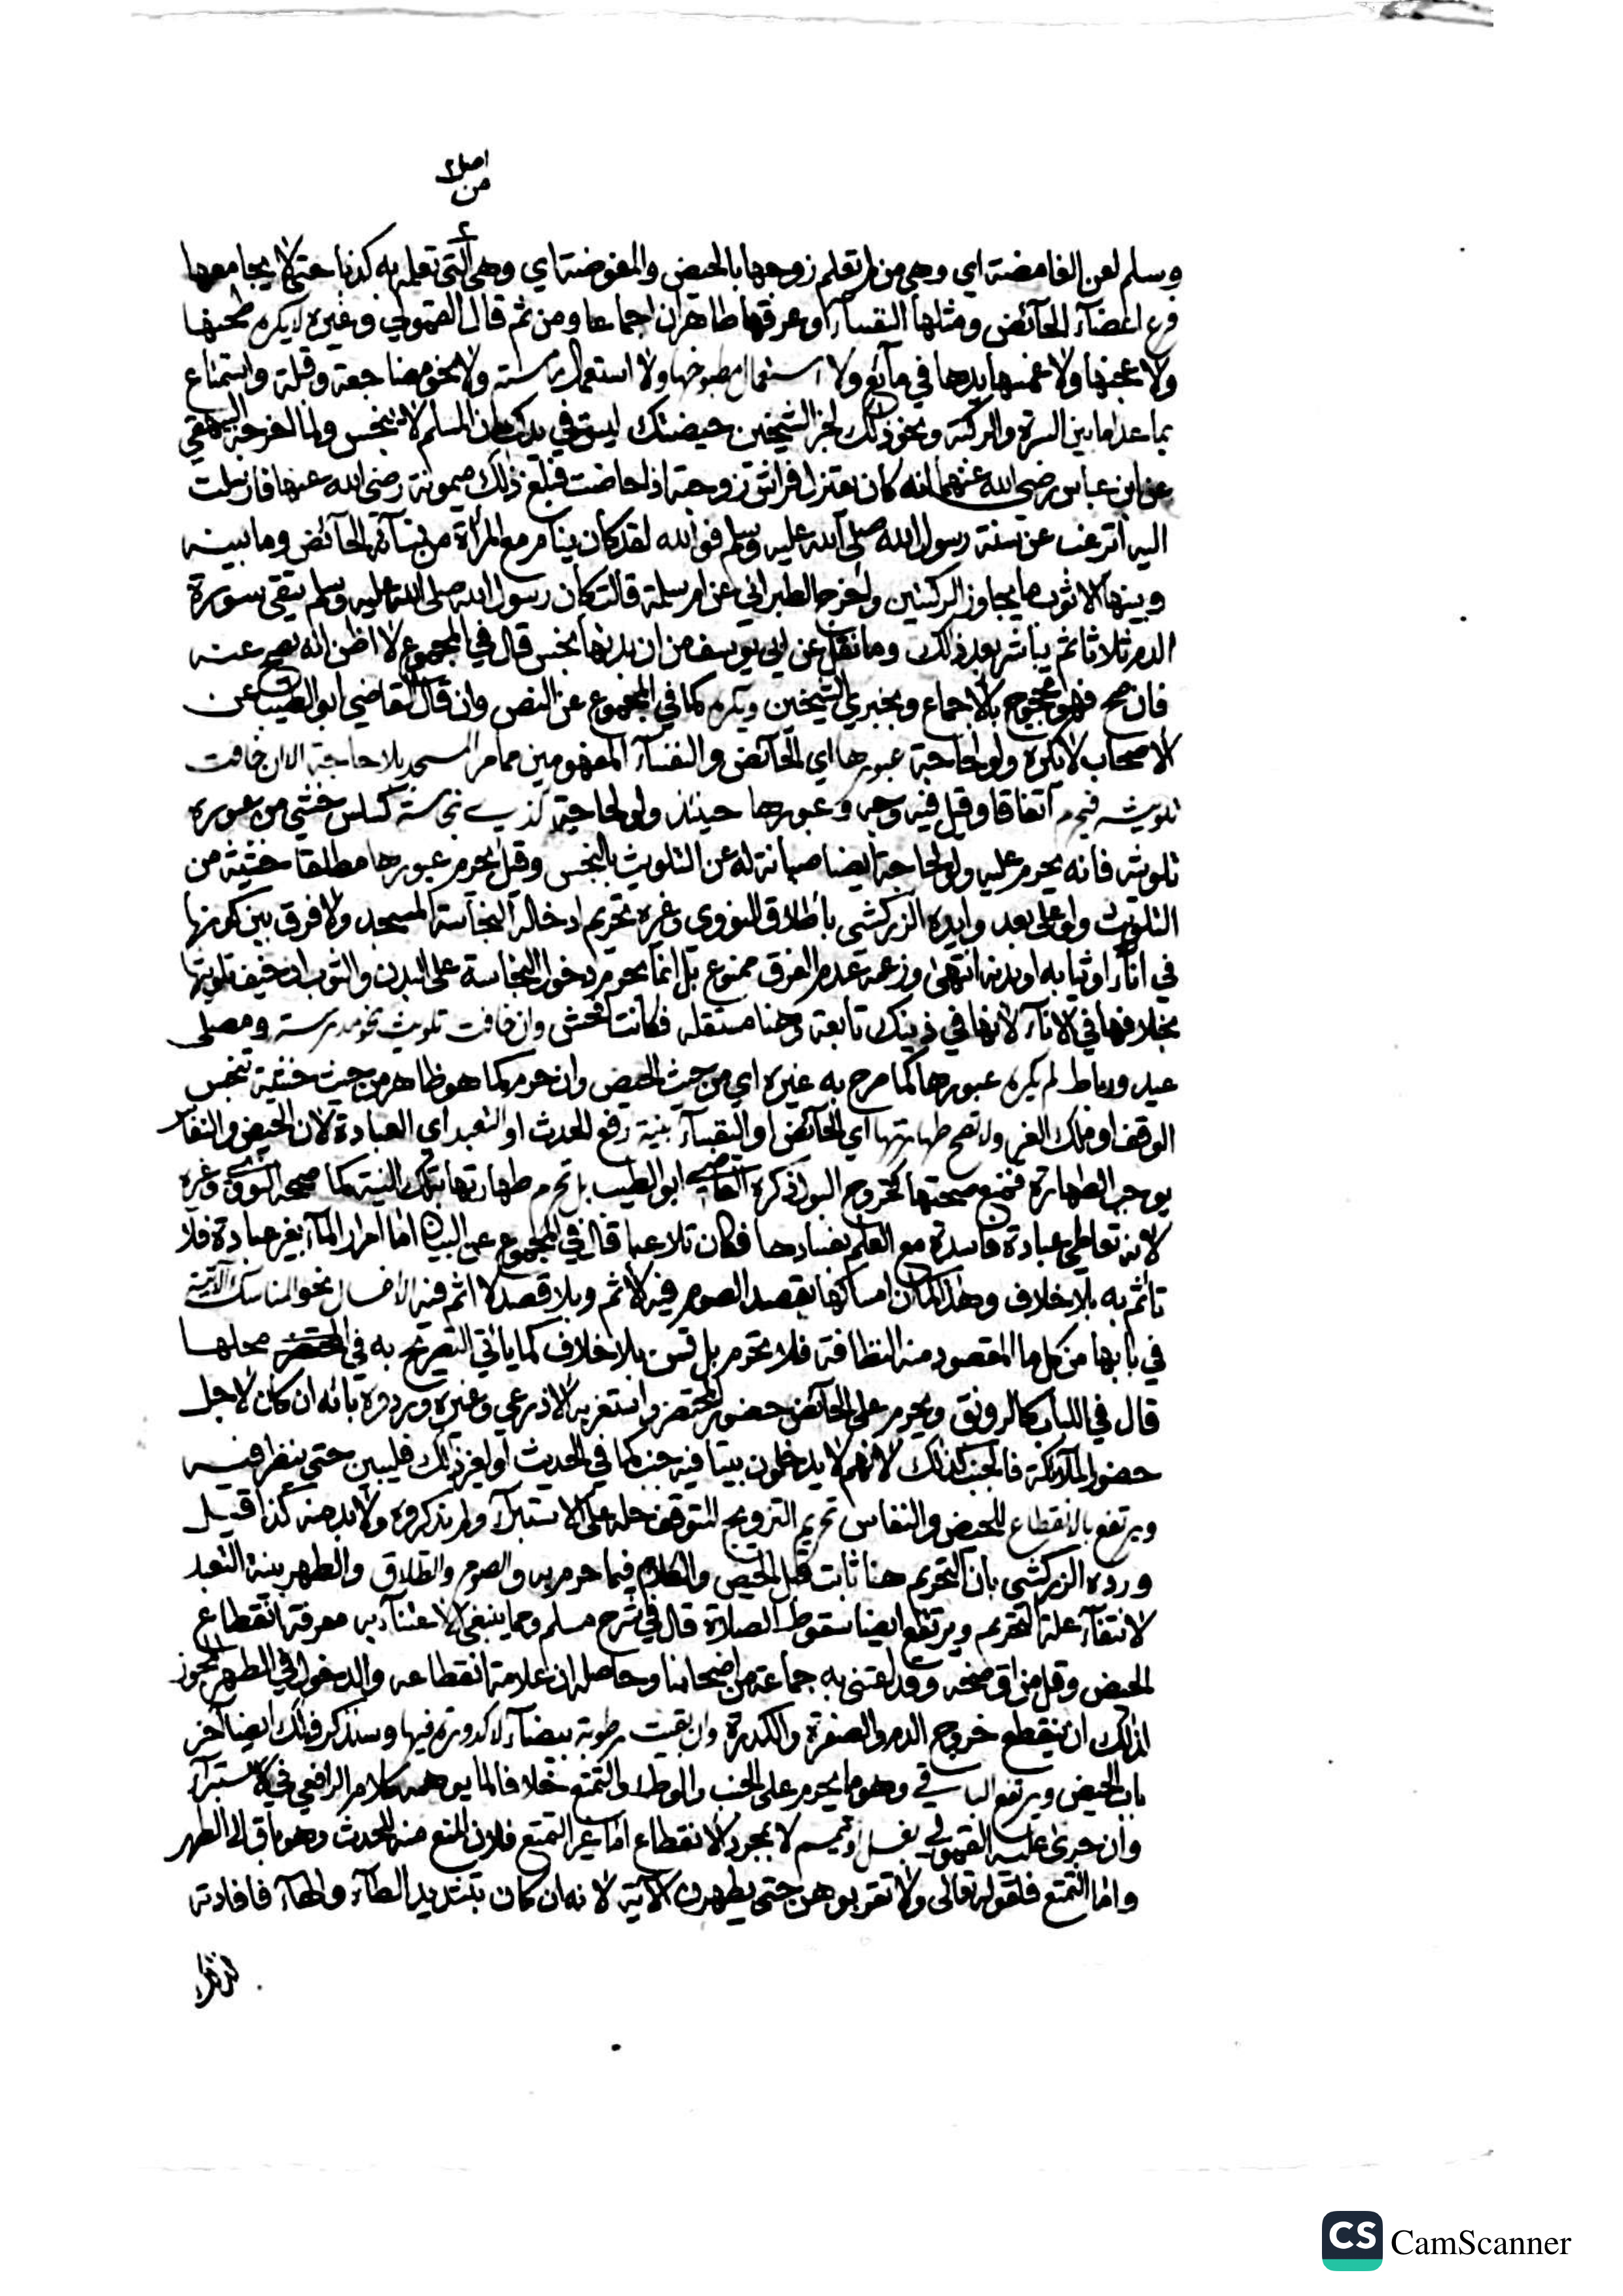 اصلا
من
وسلم لعن الغامضة اي وهي من لم تعلم زوجها بالحيض والمغوضة اي وهي التي تعلمه به كذبا حتى لا يجامعها
فرع اعضآء الحآئض ومثلها النفسآء وعرقها طاهران اجماعا ومن ثم قال القمولي وغيره لا يكره طبخها
ولا عجنها ولا غمسها يدها في مآئع ولا استعمال مطبوخها ولا استعمال ولا نحو مضاجعة وقبلة واستمتاع
بما عدا ما بين السرة والركبة ونحو ذلك لخبر الشيخين حيضتك ليست في يدك ان المسلم لا ينجس ولما اخرجه البيهقي
عن ابن عباس رضي الله عنهما انه كان يعتزل فراش زوجته اذا حاضت فبلغ ذلك ميمونة رضي الله عنها فارسلت
اليه أترغب عن سنة رسول الله صلى الله عليه وسلم فوالله لقد كان ينام مع المرأة من نسآئه الحآئض وما بينه
وبينها الا ثوب ما يجاوز الركبتين واخرج الطبراني عن ام سلمة قالت كان رسول الله صلى الله عليه وسلم يتقي سورة
الدم ثلاثا ثم يباشر بعد ذلك وما نقل عن ابي يوسف من ان بدنها نجس قال في المجموع لا اظن انه يصح عنه
فان صح فهو محجوج بالاجماع وبخبري الشيخين ويكره كما في المجموع عن النص وان قال القاضي ابو الطيب عن
الاصحاب لا يكره ولو لحاجة عبورها اي الحآئض والنفسآء المفهومين مما مر المسجد بلا حاجة الا ان خافت
تلويثه فيحرم اتفاقا وقيل فيه وجه وعبورها حينئذ ولو لحاجة كذي نجاسة كسلس خشي من عبوره
تلويثه فانه يحرم عليه ولو لحاجة ايضا صيانة له عن التلويث بالنجس وقيل يحرم عبورها مطلقا خشية من
التلويث ولو على بعد وايده الزركشي باطلاق النووي وغيره تحريم ادخال النجاسة المسجد ولا فرق بين كونها
في انآء او ثيابه او بدنه انتهى وزعمه عدم الفرق ممنوع بل انما يحرم دخول النجاسة على البدن والثوب ان خيف تلويثها
بخلافها في الانآء لانها في ذينك تابعة وهنا مستقلة فكانت افحش وان خافت تلويث نحو مدرسة ومصلى
عيد ورباط لم يكره عبورها كما صرح به غيره اي من حيث الحيض وان حرم كما هو ظاهر من حيث خشية تنجس
الوقف او ملك الغير ولا تصح طهارتها اي الحآئض او النفسآء بنية رفع الحدث او التعبد اي العبادة لان الحيض والنفاس
يوجب الطهارة فيمنع صحتها كخروج البول ذكره القاضي ابو الطيب بل تحرم طهارتها بتلك النية كما صححه النووي وغيره
لانه تعاطي عبادة فاسدة مع العلم بفسادها فكان تلاعبا قال في المجموع عن البيان اما امرار المآء بغير عبادة فلا
تأثم به بلا خلاف وهذا كما ان امساكها بقصد الصوم فيه لاثم وبلا قصد لا اثم فيه الا اغسال نحو المناسك الآتية
في بابها من كل ما المقصود منه النظافة فلا تحرم بل تسن بلا خلاف كما يأتي التصريح به في محلها
قال في اللباب كالرونق ويحرم على الحآئض حضور المحتضر واستغربه الاذرعي وغيره وردوه بانه ان كان لاجل
حضور الملآئكة فالجنب كذلك لانهم لا يدخلون بيتا فيه جنب كما في الحديث او لغير ذلك فليبين حتى ينظر فيه
ويرتفع بالانقطاع للحيض والنفاس تحريم التزويج المتوقف حله على الاستبرآء ولم يذكروه ولا بد منه كذا قيل
ورده الزركشي بان التحريم هنا ثابت قبل الحيض والكلام فيما حرم به والصوم والطلاق والطهر بنية التعبد
لانتفآء علة التحريم ويرتفع ايضا سقوط الصلاة قال في شرح مسلم ومما ينبغي الاعتنآء به معرفة انقطاع
الحيض وقل من اوضحه وقد اعتنى به جماعة من اصحابنا وحاصله ان علامة انقطاعه والدخول في الطهر
ان ينقطع خروج الدم والصفرة والكدرة وان بقيت رطوبة بيضآء لا كدورة فيها وسنذكر ذلك ايضا آخر
باب الحيض ويرتفع الباقي وهو ما يحرم على الجنب والوطء والتمتع خلافا لما يوهمه كلام الرافعي في الاستبرآء
وان جرى عليه القمولي بغسل او تيمم لا بمجرد الانقطاع اما غير التمتع فلان المنع منه للحدث وهو باق الى الطهر
واما التمتع فلقوله تعالى ولا تقربوهن حتى يطهرن الآية لانه ان كان بتشديد الطآء والهآء فافادته